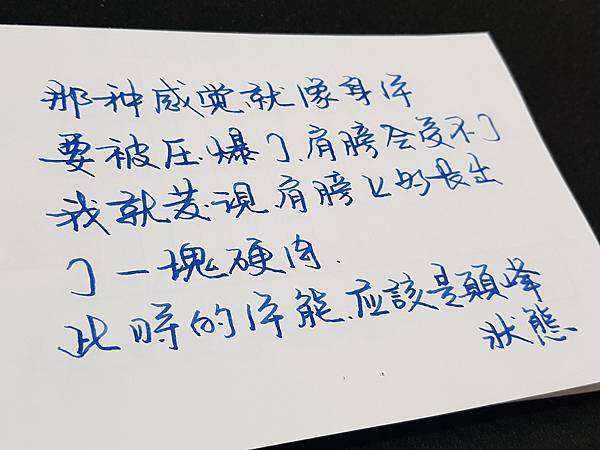 那种感觉就像身体
要被压爆了.肩膀会受不了
我就发现肩膀上的長出
了一塊硬肉.
此時的体能.应該是顛峰
狀態